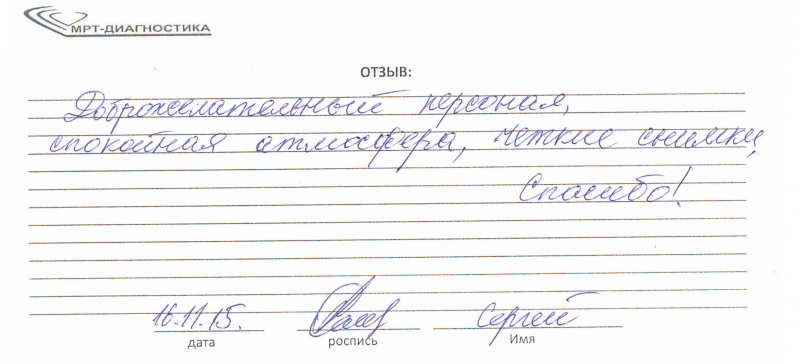 МРТ-ДИАГНОСТИКА
ОТЗЫВ:
Доброжелательный персонал,
спокойная атмосфера, четкие снимки,
Спасибо!
16.11.15. Сергей
дата роспись Имя